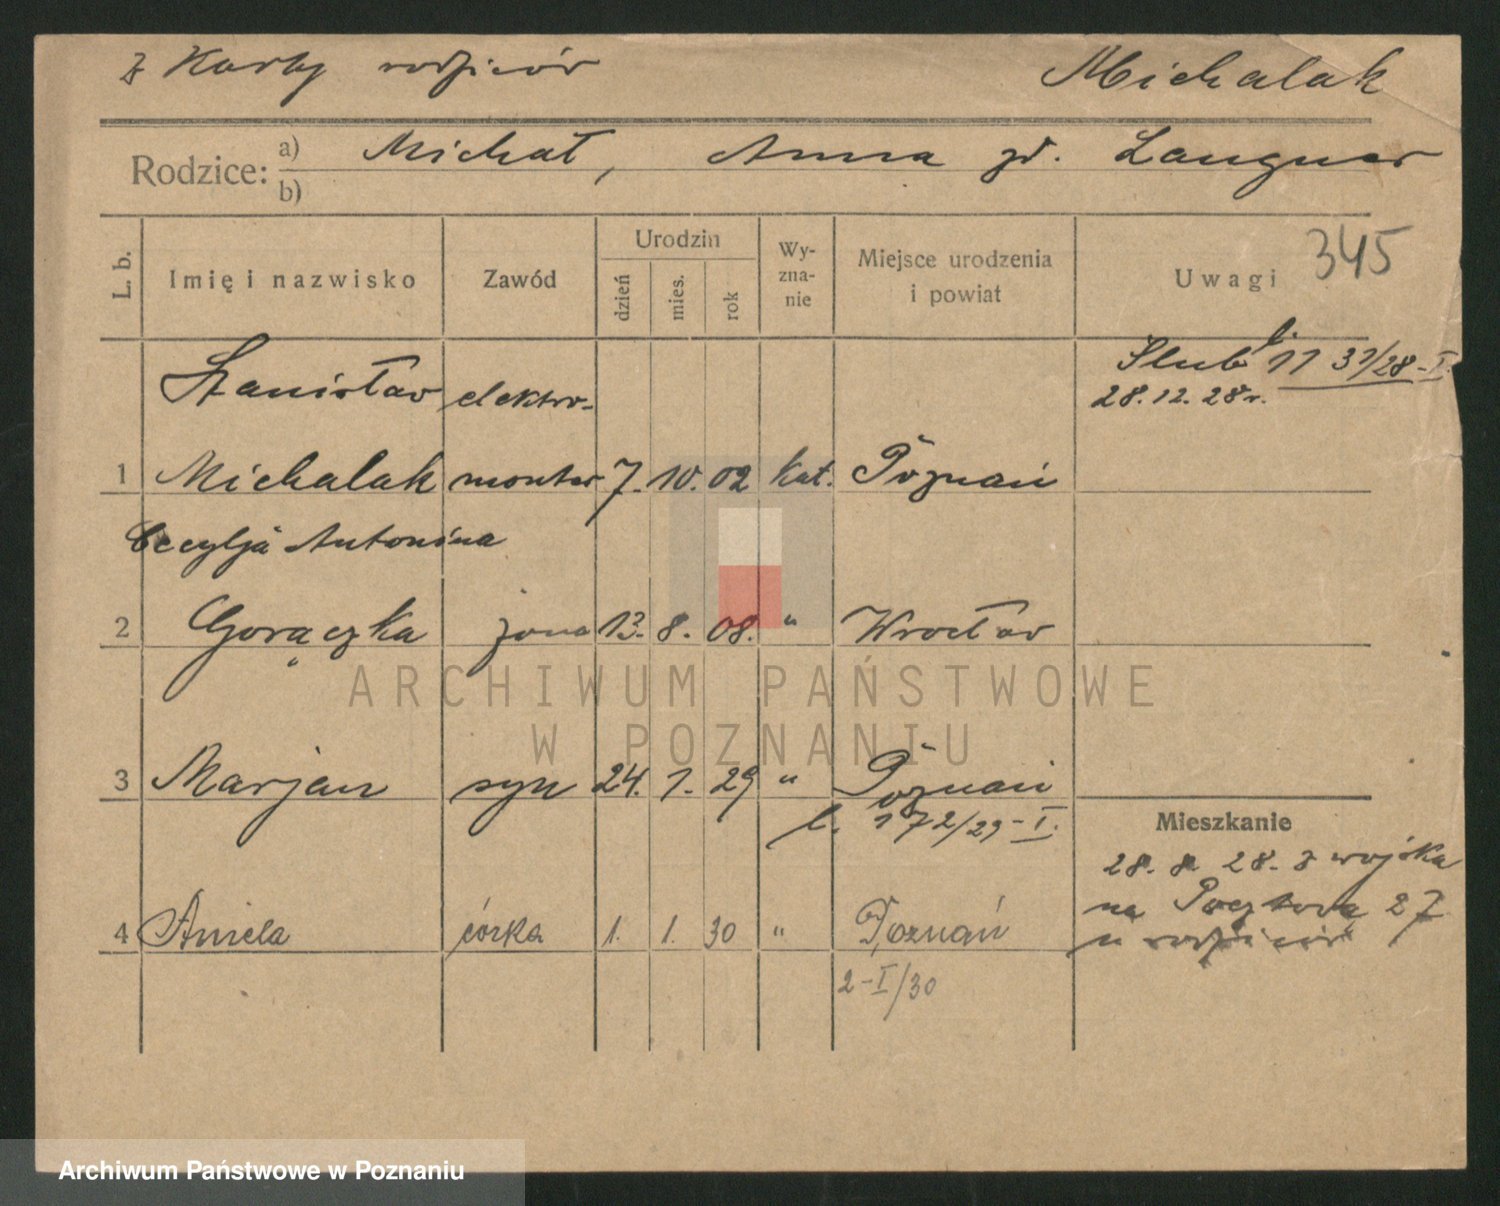 z Karty rodziców Michalak
Rodzice: a) Michał, Anna zd. Langner
b)
L. b. Imię i nazwisko Zawód Urodzin dzień mies. rok Wyzna-nie Miejsce urodzenia i powiat Uwagi 345
Stanisław elektro- Slub l. 11
28.12.28r.
1 Michalak monter 7. 10. 02 kat. Poznań
Cecylja Antonina
2 Gorączka żona 13. 8. 08. " Wrocław
ARCHIWUM PAŃSTWOWE
W POZNANIU
3 Marjan syn 24. 1. 29 " Poznań
l. 172/29-I.
Mieszkanie
28. 8. 28. z wojska
na Pocztową 27
u rodziców
4 Aniela córka 1. 1. 30 " Poznań
2-I/30
Archiwum Państwowe w Poznaniu